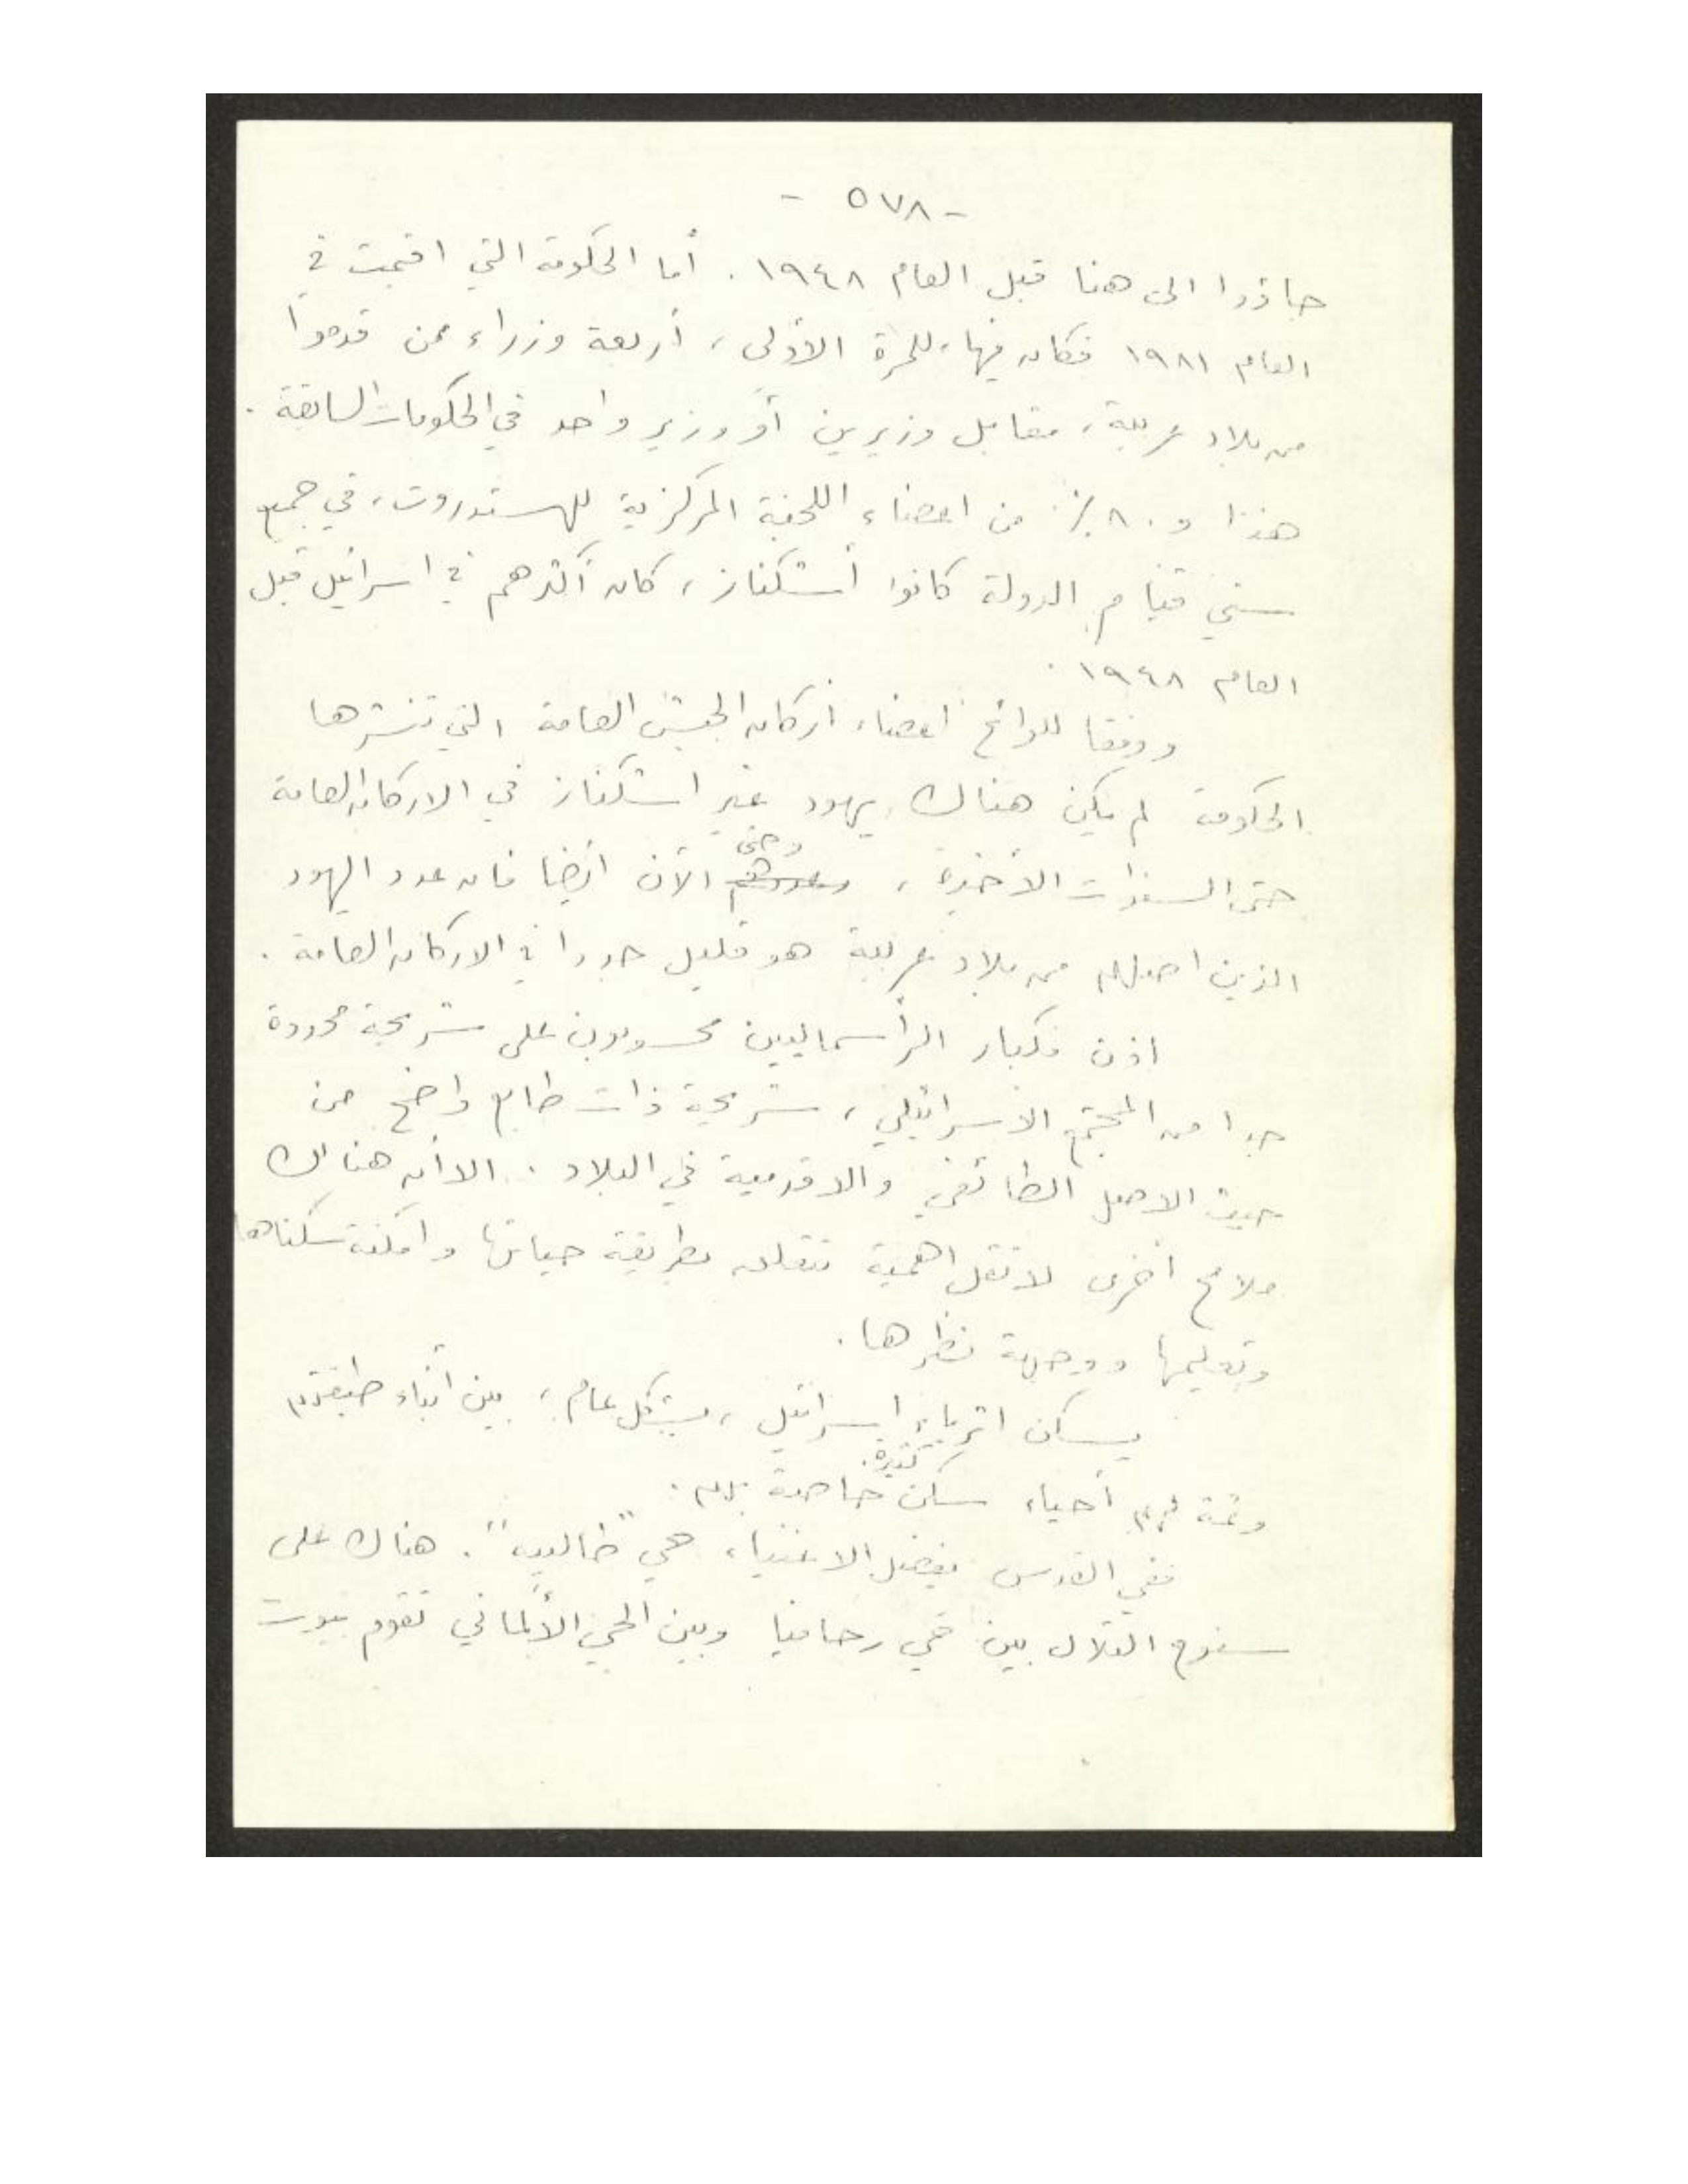 - ٥٧٨ -
جاؤوا الى هنا قبل العام ١٩٤٨ . أما الحكومة التي اقيمت في
العام ١٩٨١ فكان فيها، للمرة الأولى ، أربعة وزراء ممن قدموا
من بلاد عربية ، مقابل وزيرين أو وزير واحد في الحكومات السابقة .
هذا و ٨٠٪ من اعضاء اللجنة المركزية للهستدروت ، في جميع
سني قيام الدولة كانوا أشكناز ، كان أكثرهم في اسرائيل قبل
العام ١٩٤٨ .
ووفقا للوائح اعضاء أركان الجيش العامة التي تنشرها
الحكومة لم يكن هناك يهود غير اشكناز في الاركان العامة
حتى السنوات الأخيرة ، وحتى الآن ايضا فان عدد اليهود
الذين اصلهم من بلاد عربية هو قليل جدا في الاركان العامة .
اذن فكبار الرأسماليين محسوبون على شريحة محدودة
جدا من المجتمع الاسرائيلي ، شريحة ذات طابع واضح من
حيث الاصل الطائفي والاقدمية في البلاد . الا أن هناك
ملامح أخرى لا تقل اهمية تتعلق بطريقة حياتها وامكنة سكناها
وتعليمها ووجهة نظرها .
يسكن اثرياء اسرائيل ، بشكل عام ، بين أبناء طبقتهم
وثمة لهم أحياء سكن كثيرة خاصة بهم .
ففي القدس يفضل الاغنياء حي "طالبيه" . هناك على
سفوح التلال بين حي رحافيا وبين الحي الألماني تقوم بيوت